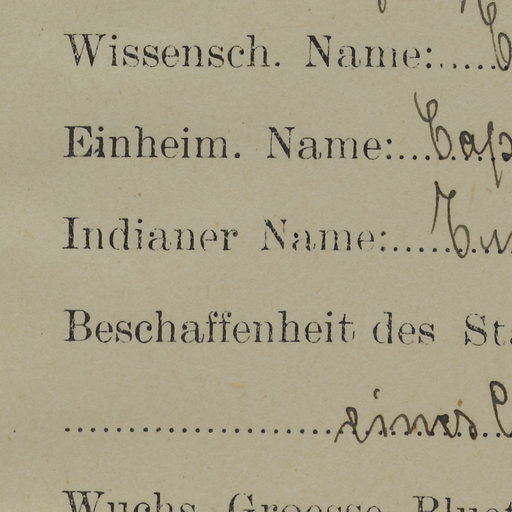 Wissensch. Name:.....
Einheim. Name:...
Indianer Name:.....
Beschaffenheit des
.....................eines
Wuchs, Groesse,